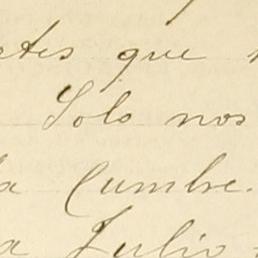 que
Solo nos
Cumbre.
a Julio